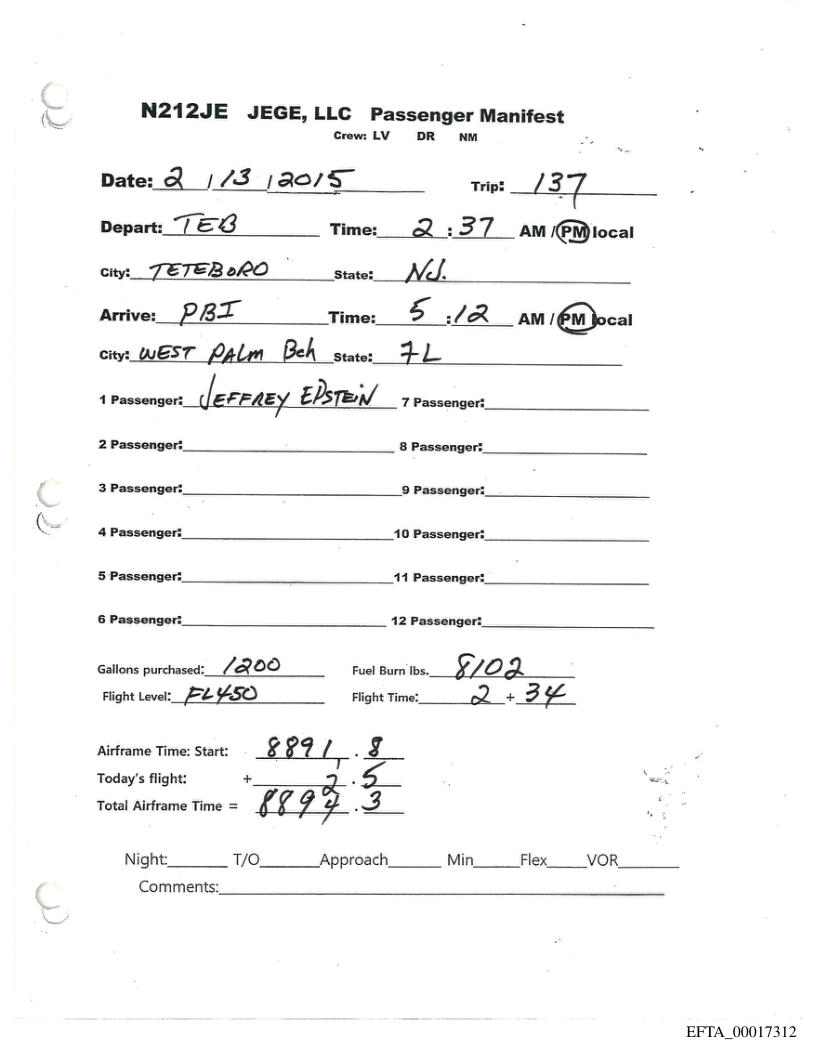 N212JE JEGE, LLC Passenger Manifest
Crew: LV DR NM
Date: 2 / 13 / 2015 Trip: 137
Depart: TEB Time: 2 : 37 AM / PM local
City: TETEBORO State: NJ.
Arrive: PBI Time: 5 : 12 AM / PM local
City: WEST PALM Bch State: FL
1 Passenger: JEFFREY EPSTEIN 7 Passenger:
2 Passenger: 8 Passenger:
3 Passenger: 9 Passenger:
4 Passenger: 10 Passenger:
5 Passenger: 11 Passenger:
6 Passenger: 12 Passenger:
Gallons purchased: 1200 Fuel Burn lbs. 8102
Flight Level: FL450 Flight Time: 2 + 34
Airframe Time: Start: 8891 . 8
Today's flight: + 2 . 5
Total Airframe Time = 8894 . 3
Night: T/O Approach Min Flex VOR
Comments:
EFTA_00017312